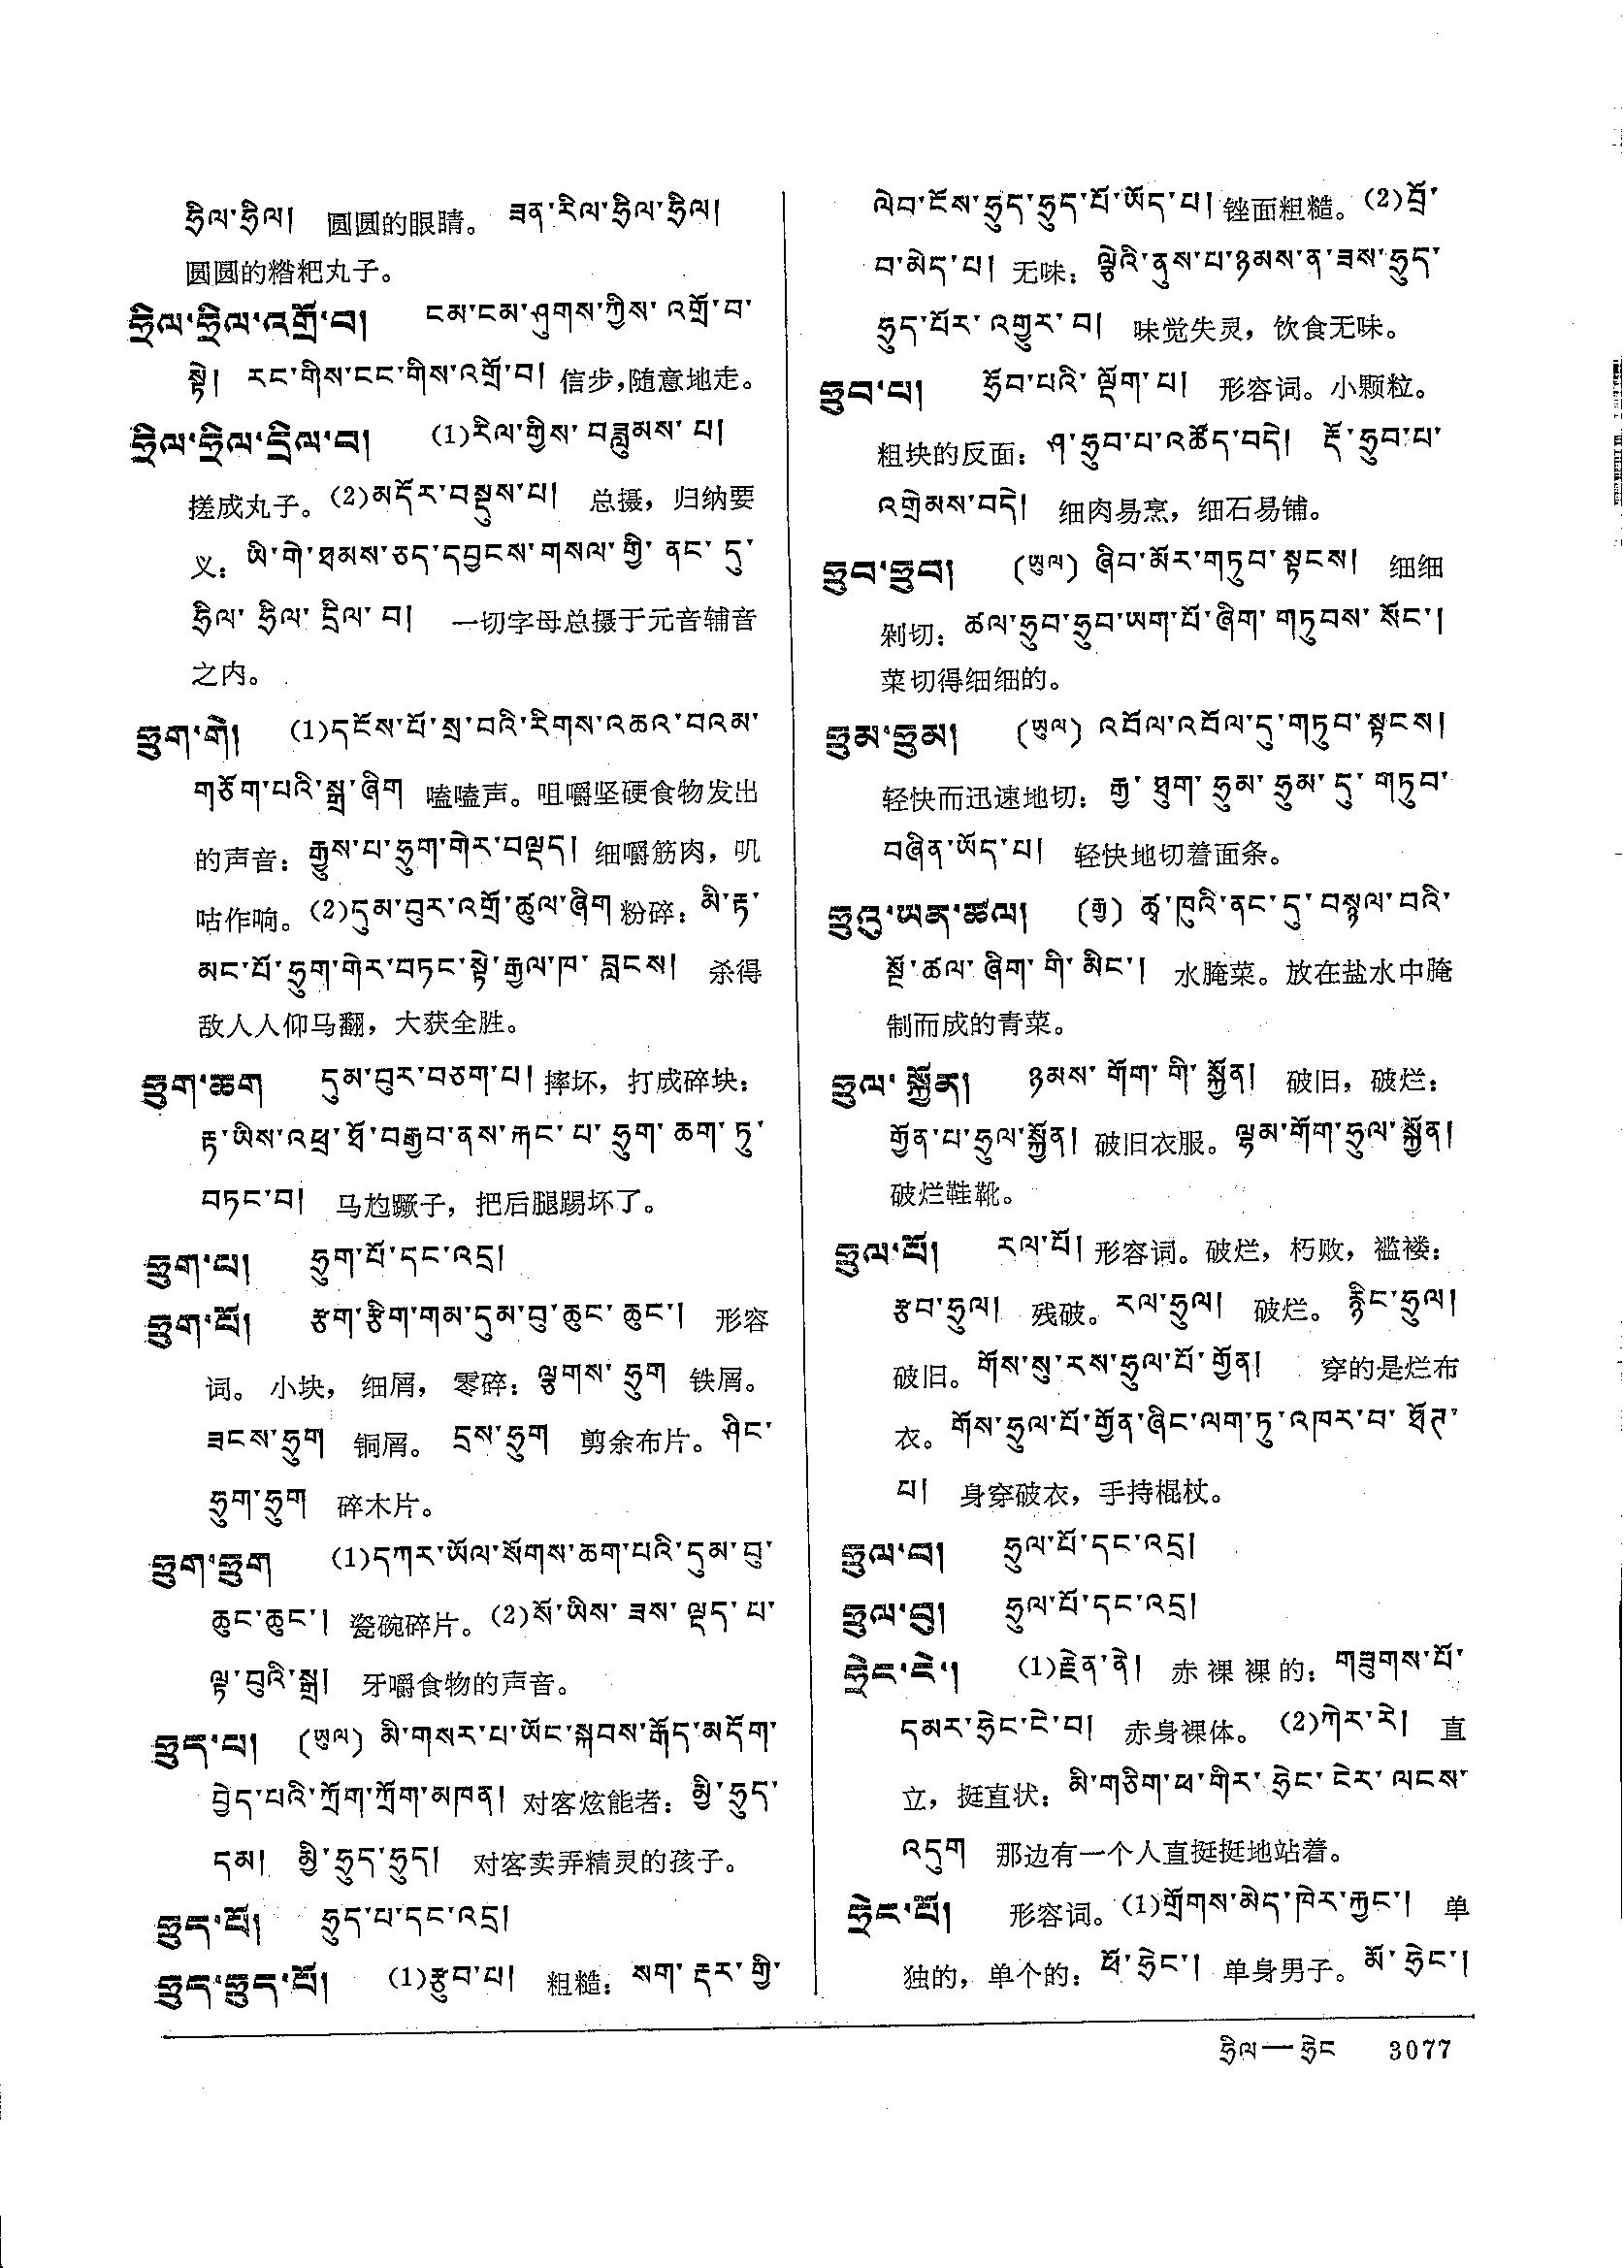 ཧྲིལ་ཧྲིལ། 圆圆的眼睛。 ཟན་རིལ་ཧྲིལ་ཧྲིལ།
圆圆的糌粑丸子。
ཧྲིལ་ཧྲིལ་འགྲོ་བ། ངམ་ངམ་ཤུགས་ཀྱིས་འགྲོ་བ་
སྟེ། རང་གིས་ངང་གིས་འགྲོ་བ། 信步,随意地走。
ཧྲིལ་ཧྲིལ་དྲིལ་བ། (1)རིལ་གྱིས་བཟླུམས་པ།
搓成丸子。(2)མདོར་བསྡུས་པ། 总摄，归纳要
义：ཡི་གེ་ཐམས་ཅད་དབྱངས་གསལ་གྱི་ནང་དུ་
ཧྲིལ་ཧྲིལ་དྲིལ་བ། 一切字母总摄于元音辅音
之内。
ཧྲུག་གེ། (1)དངོས་པོ་སྲ་བའི་རིགས་འཆའ་བའམ་
གཅོག་པའི་སྒྲ་ཞིག 嗑嗑声。咀嚼坚硬食物发出
的声音：རྒྱུས་པ་ཧྲུག་གེར་བལྡད། 细嚼筋肉，叽
咕作响。(2)དུམ་བུར་འགྲོ་ཚུལ་ཞིག 粉碎：མི་རྟ་
མང་པོ་ཧྲུག་གེར་བཏང་སྟེ་རྒྱལ་ཁ་བླངས། 杀得
敌人人仰马翻，大获全胜。
ཧྲུག་ཆག དུམ་བུར་བཅག་པ། 摔坏，打成碎块：
རྟ་ཡིས་འཕྲ་ཐོ་བརྒྱབ་ནས་རྐང་པ་ཧྲུག་ཆག་ཏུ་
བཏང་བ། 马尥蹶子，把后腿踢坏了。
ཧྲུག་པ། ཧྲུག་པོ་དང་འདྲ།
ཧྲུག་པོ། རྩག་རྩིག་གམ་དུམ་བུ་ཆུང་ཆུང་། 形容
词。小块，细屑，零碎：ལྕགས་ཧྲུག 铁屑。
ཟངས་ཧྲུག 铜屑。 དྲས་ཧྲུག 剪余布片。ཤིང་
ཧྲུག་ཧྲུག 碎木片。
ཧྲུག་ཧྲུག (1)དཀར་ཡོལ་སོགས་ཆག་པའི་དུམ་བུ་
ཆུང་ཆུང་། 瓷碗碎片。(2)སོ་ཡིས་ཟས་ལྡད་པ་
ལྟ་བུའི་སྒྲ། 牙嚼食物的声音。
ཧྲུད་པ། (ཡུལ) མི་གསར་པ་ཡོང་སྐབས་རྒོད་མདོག་
བྱེད་པའི་ཀྲོག་ཀྲོག་མཁན། 对客炫能者：མྱི་ཧྲུད་
དམ། མྱི་ཧྲུད་ཧྲུད། 对客卖弄精灵的孩子。
ཧྲུད་པོ། ཧྲུད་པ་དང་འདྲ།
ཧྲུད་ཧྲུད་པོ། (1)རྩུབ་པ། 粗糙：སག་རྡར་གྱི་
ལེབ་ངོས་ཧྲུད་ཧྲུད་པོ་ཡོད་པ། 锉面粗糙。(2)བྲོ་
བ་མེད་པ། 无味：ལྕེའི་ནུས་པ་ཉམས་ན་ཟས་ཧྲུད་
ཧྲུད་པོར་འགྱུར་བ། 味觉失灵，饮食无味。
ཧྲུབ་པ། ཧྲོབ་པའི་ལྡོག་པ། 形容词。小颗粒。
粗块的反面：ཤ་ཧྲུབ་པ་འཚོད་བདེ། རྡོ་ཧྲུབ་པ་
འགྲེམས་བདེ། 细肉易烹，细石易铺。
ཧྲུབ་ཧྲུབ། (ཡུལ) ཞིབ་མོར་གཏུབ་སྟངས། 细细
剁切：ཚལ་ཧྲུབ་ཧྲུབ་ཡག་པོ་ཞིག་གཏུབས་སོང་།
菜切得细细的。
ཧྲུམ་ཧྲུམ། (ཡུལ) འབོལ་འབོལ་དུ་གཏུབ་སྟངས།
轻快而迅速地切：རྒྱ་ཐུག་ཧྲུམ་ཧྲུམ་དུ་གཏུབ་
བཞིན་ཡོད་པ། 轻快地切着面条。
ཧྲུའུ་ཡན་ཚལ། (རྒྱ) ཚྭ་ཁུའི་ནང་དུ་བསྙལ་བའི་
སྔོ་ཚལ་ཞིག་གི་མིང་། 水腌菜。放在盐水中腌
制而成的青菜。
ཧྲུལ་སྐྱོན། ཉམས་གོག་གི་སྐྱོན། 破旧，破烂：
གྱོན་པ་ཧྲུལ་སྐྱོན། 破旧衣服。ལྷམ་གོག་ཧྲུལ་སྐྱོན།
破烂鞋靴。
ཧྲུལ་པོ། རལ་པོ། 形容词。破烂，朽败，褴褛：
རྩབ་ཧྲུལ། 残破。རལ་ཧྲུལ། 破烂。 རྙིང་ཧྲུལ།
破旧。གོས་སུ་རས་ཧྲུལ་པོ་གྱོན། 穿的是烂布
衣。གོས་ཧྲུལ་པོ་གྱོན་ཞིང་ལག་ཏུ་འཁར་བ་ཐོཊ་
པ། 身穿破衣，手持棍杖。
ཧྲུལ་བ། ཧྲུལ་པོ་དང་འདྲ།
ཧྲུལ་བུ། ཧྲུལ་པོ་དང་འདྲ།
ཧྲེང་ངེ་། (1)རྗེན་ནེ། 赤裸裸的：གཟུགས་པོ་
དམར་ཧྲེང་ངེ་བ། 赤身裸体。 (2)ཀེར་རེ། 直
立，挺直状：མི་གཅིག་ཕ་གིར་ཧྲེང་ངེར་ལངས་
འདུག 那边有一个人直挺挺地站着。
ཧྲེང་པོ། 形容词。(1)གྲོགས་མེད་ཁེར་རྐྱང་། 单
独的，单个的：ཕོ་ཧྲེང་། 单身男子。མོ་ཧྲེང་།
ཧྲིལ—ཧྲེང 3077